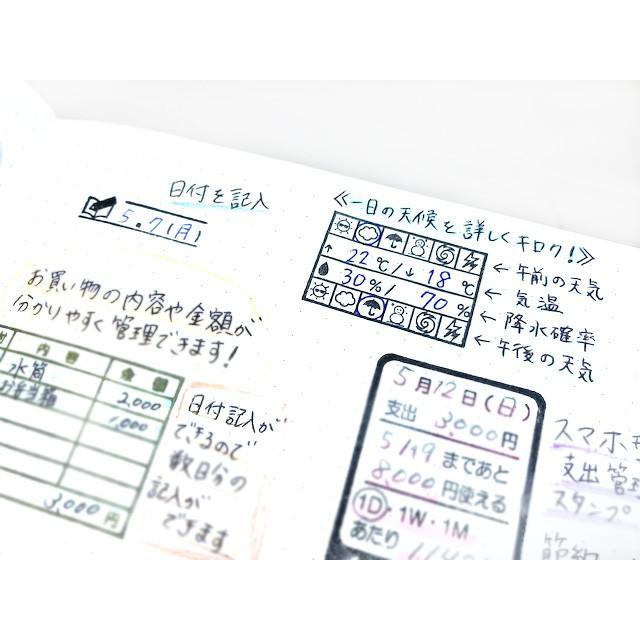 日付を記入
5.7(月)
≪一日の天候を詳しくキロク!≫
↑ 22℃/↓ 18℃
30%/ 70%
← 午前の天気
← 気温
← 降水確率
← 午後の天気
お買い物の内容や金額が
分かりやすく管理できます!
内容 金額
水筒 2,000
お弁当箱 1,000
3,000円
日付記入が
できるので
数日分の
記入が
できます
5月12日(日)
支出 3,000円
5/19 まであと
8,000円使える
1D・1W・1M
あたり
スマホ
支出管理
スタンプ
節約